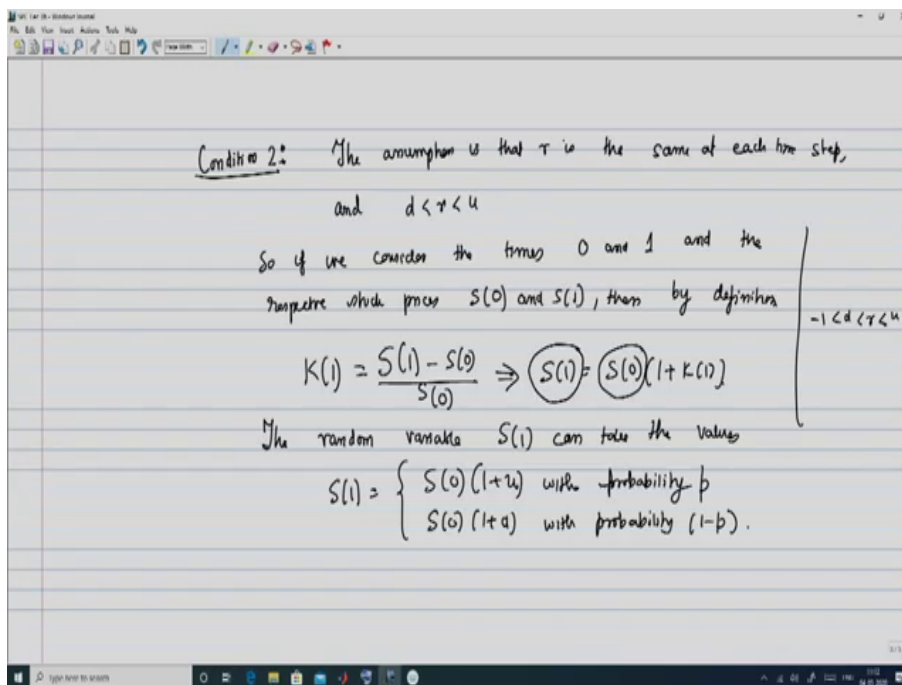 File Edit View Insert Actions Tools Help
Page Width
Condition 2: The assumption is that r is the same at each time step,
and d < r < u
So if we consider the times 0 and 1 and the
respective stock prices S(0) and S(1), then by definition
-1 < d < r < u
K(1) = S(1) - S(0) / S(0) ⇒ S(1) = S(0) [1 + K(1)]
The random variable S(1) can take the values
S(1) = { S(0) (1+u) with probability p
S(0) (1+d) with probability (1-p).
Type here to search